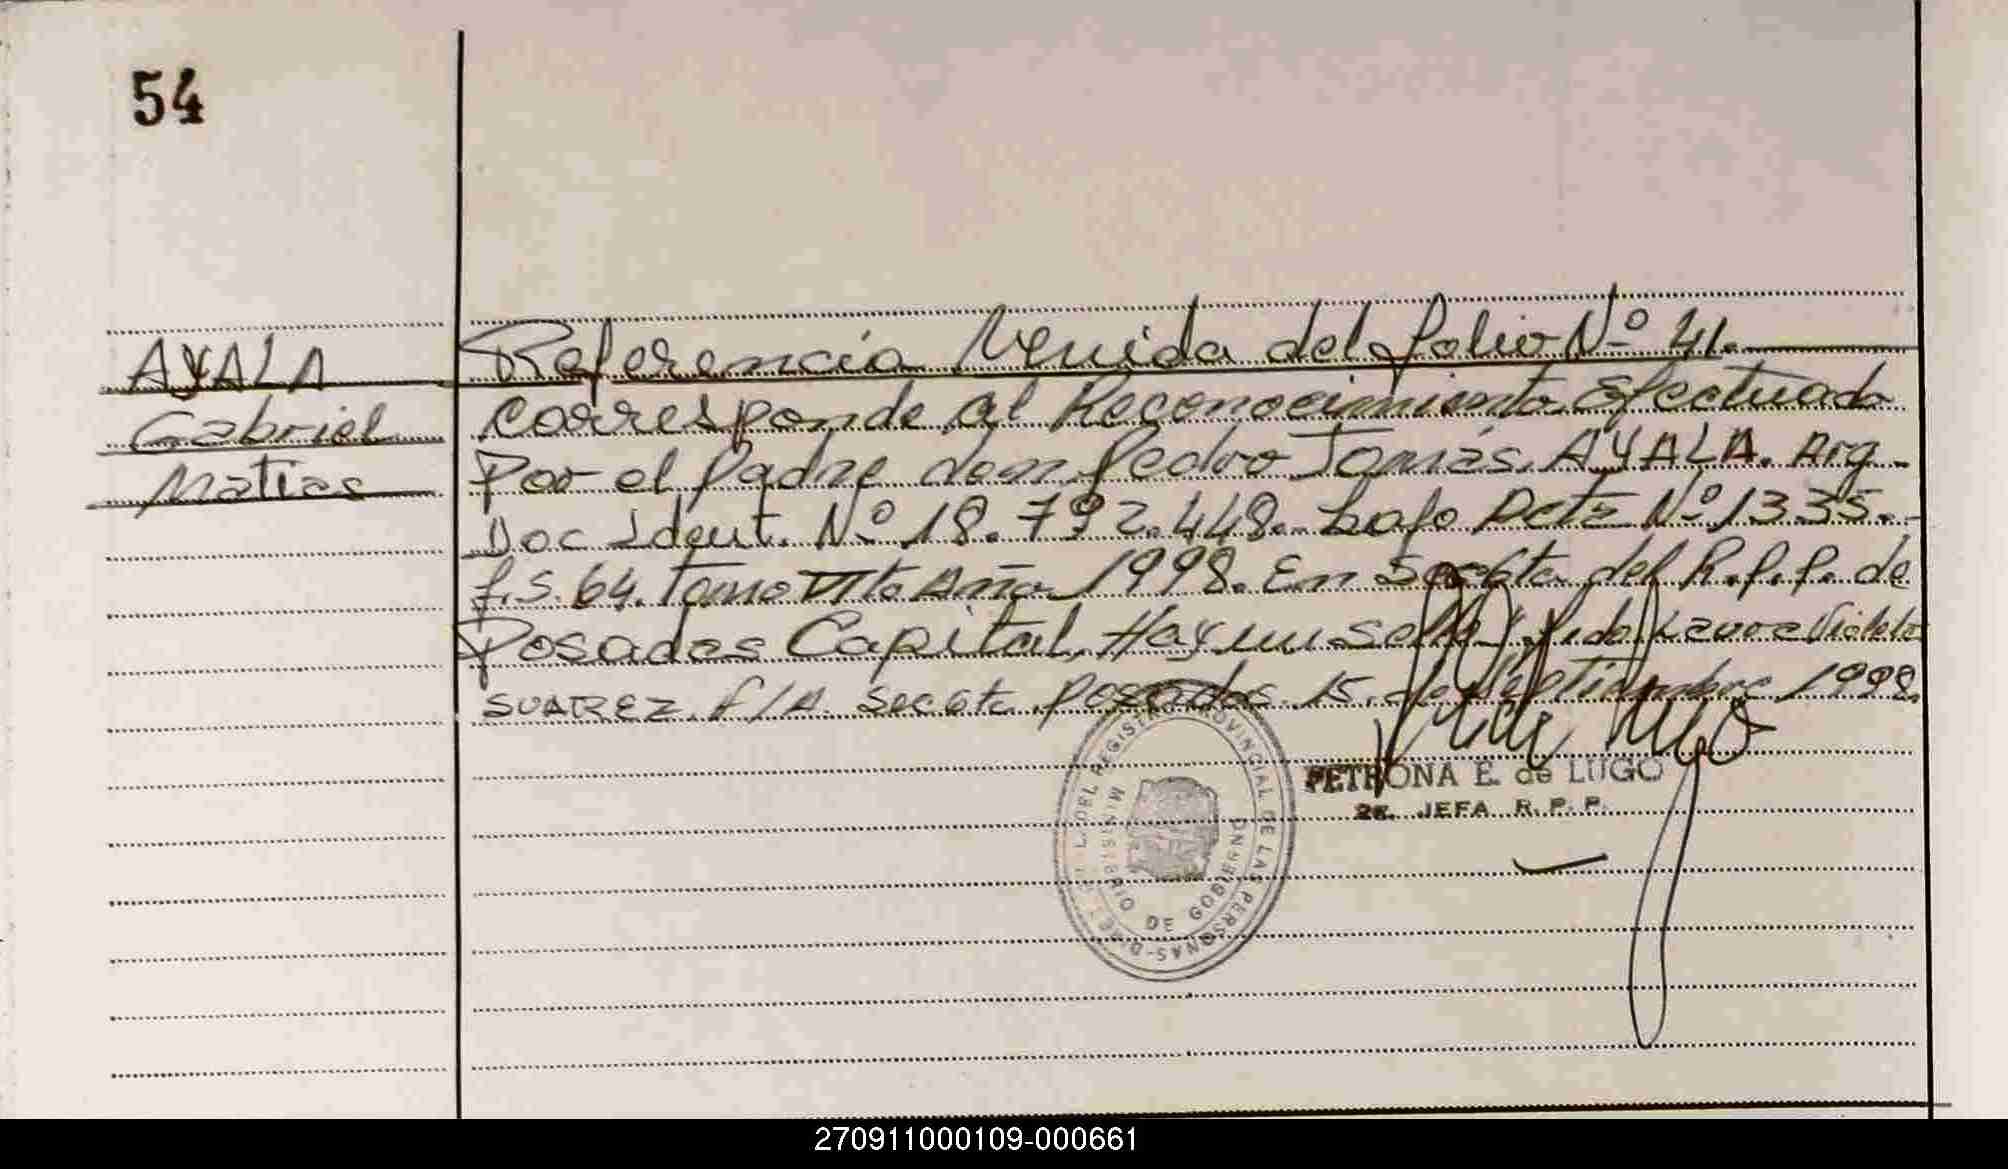 54
AYALA
Gabriel
Matias
Referencia Venida del folio Nº 41.
corresponde al Reconocimiento efectuado
Por el Padre don Pedro Tomás AYALA. Arg.
Doc Ident. Nº 18.792.448. bajo Acta Nº 1335.
f.s. 64. Tomo VIto Año 1998. En Sec 6ta del R.P.P. de
Posadas Capital, Hay un sello y fdo Laura Violeta
SUAREZ. f/A. Sec 6ta Posadas 15. de Septiembre 1998.
PETRONA E. de LUGO
JEFA R.P.P.
DEL REGISTRO PROVINCIAL DE LAS PERSONAS
MINISTERIO DE GOBIERNO
270911000109-000661